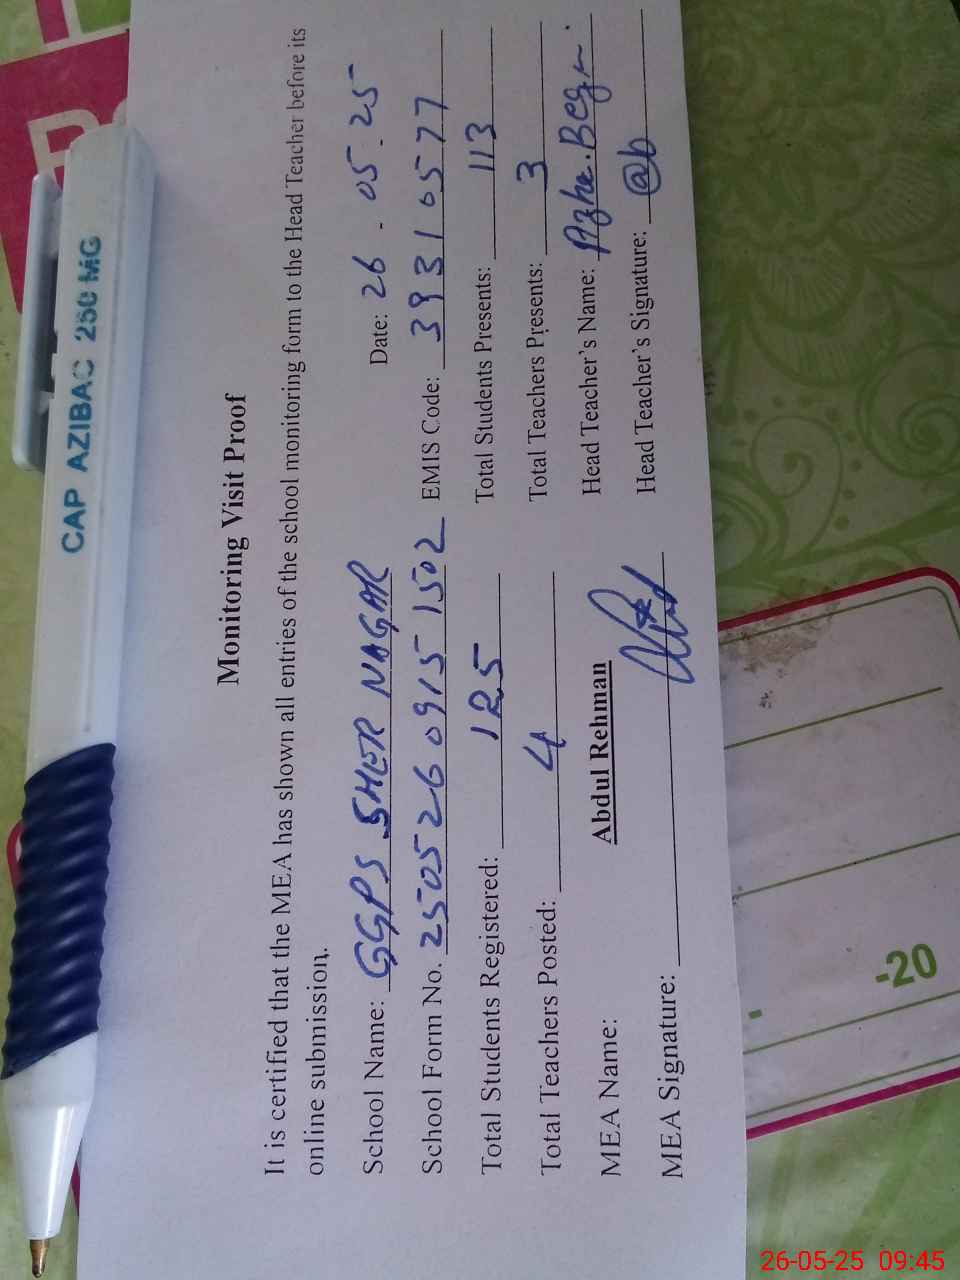 Monitoring Visit Proof
It is certified that the MEA has shown all entries of the school monitoring form to the Head Teacher before its
online submission.
School Name: GGPS SHER NAGAR Date: 26-05-25
School Form No. 25052609151502 EMIS Code: 39310577
Total Students Registered: 125 Total Students Presents: 113
Total Teachers Posted: 4 Total Teachers Presents: 3
MEA Name: Abdul Rehman Head Teacher's Name: Azha.Begm.
MEA Signature: Head Teacher's Signature:
CAP AZIBAC 250 MG
-20
26-05-25 09:45